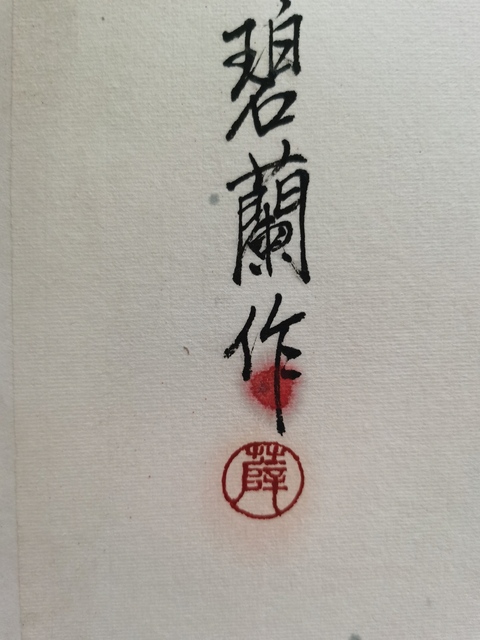 碧蘭作
薛